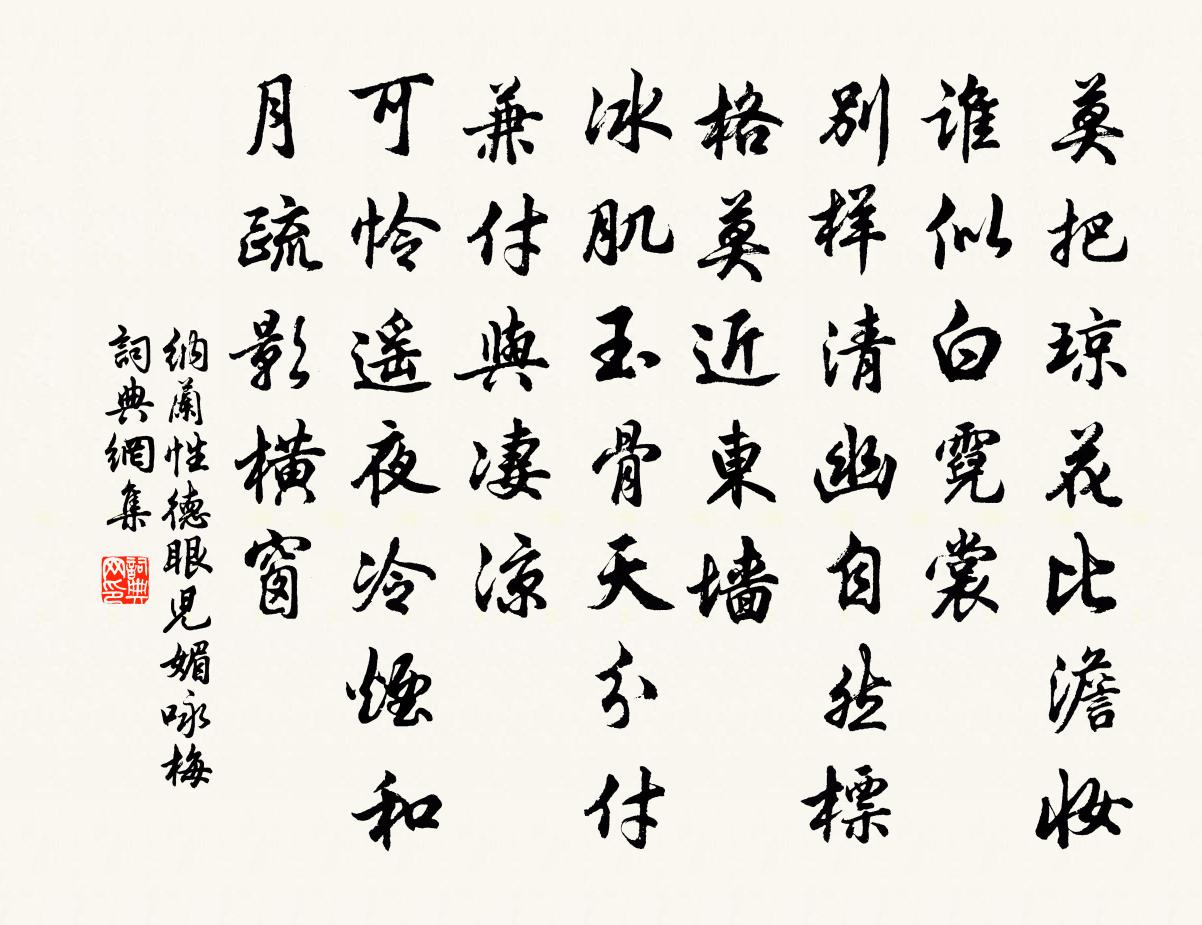 莫把琼花比澹妆
谁似白霓裳
别样清幽自然標
格莫近東墙
冰肌玉骨天分付
兼付與凄涼
可怜遥夜冷煙和
月疏影橫窗
納蘭性德眼兒媚咏梅
詞典網集
詞典网印